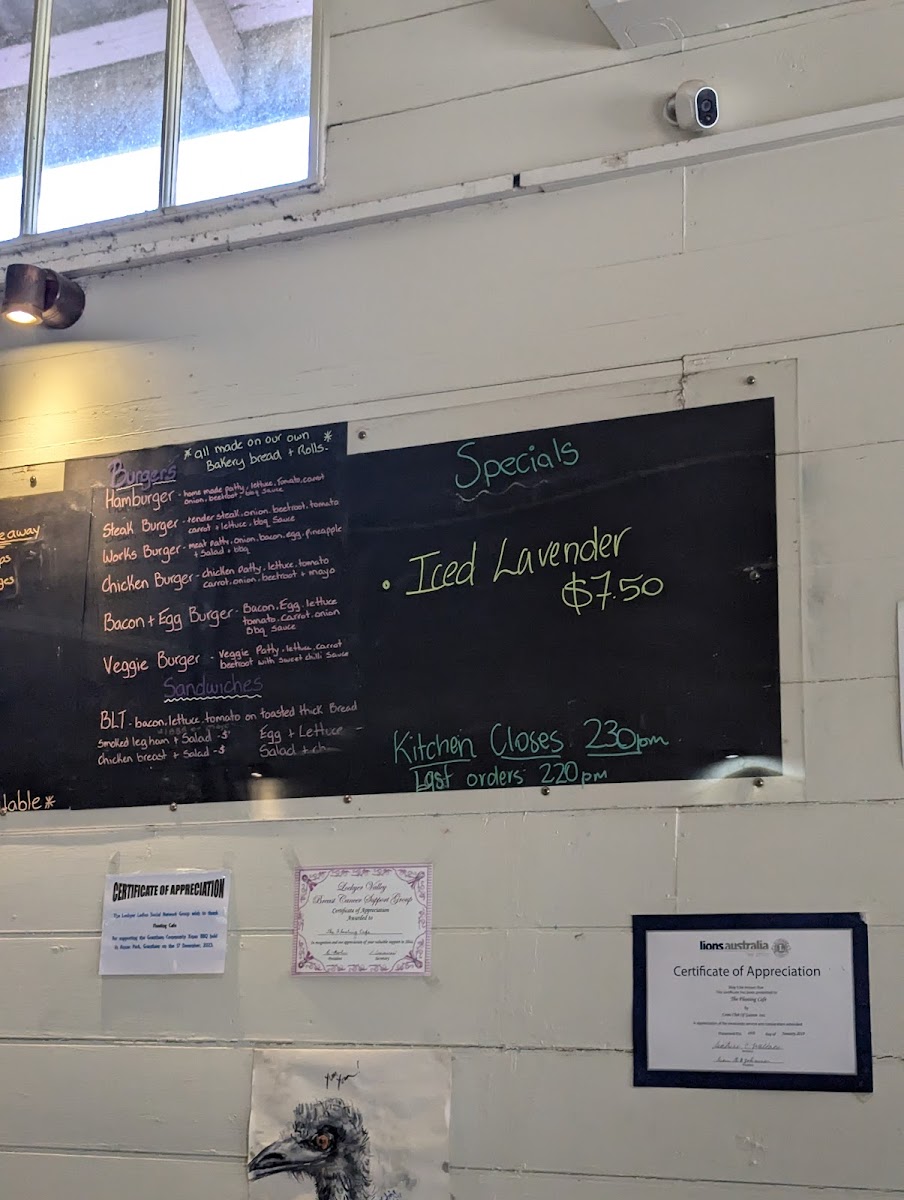 eaway
ps
ges
table*
Burgers
*all made on our own
Bakery bread + Rolls-*
Hamburger - home made patty, lettuce, tomato, carrot
onion, beetroot - bbq sauce
Steak Burger - tender steak, onion, beetroot, tomato
carrot + lettuce, bbq sauce
Works Burger - meat patty, onion, bacon, egg, pineapple
+ salad + bbq
Chicken Burger - chicken patty, lettuce, tomato
carrot, onion, beetroot + mayo
Bacon + Egg Burger - Bacon, Egg, lettuce
tomato, carrot, onion
Bbq sauce
Veggie Burger - veggie patty, lettuce, carrot
beetroot with sweet chilli sauce
Sandwiches
BLT - bacon, lettuce, tomato on toasted thick Bread
smoked leg ham + Salad -$
Egg + Lettuce
chicken breast + Salad -$
Salad + ch
Specials
• Iced Lavender
$7.50
Kitchen Closes 230pm
Last orders 220pm
CERTIFICATE OF APPRECIATION
The Lockyer Ladies Social Network Group wish to thank
Floating Cafe
Lockyer Valley
Breast Cancer Support Group
Certificate of Appreciation
Awarded to
President
Secretary
lionsaustralia
Certificate of Appreciation